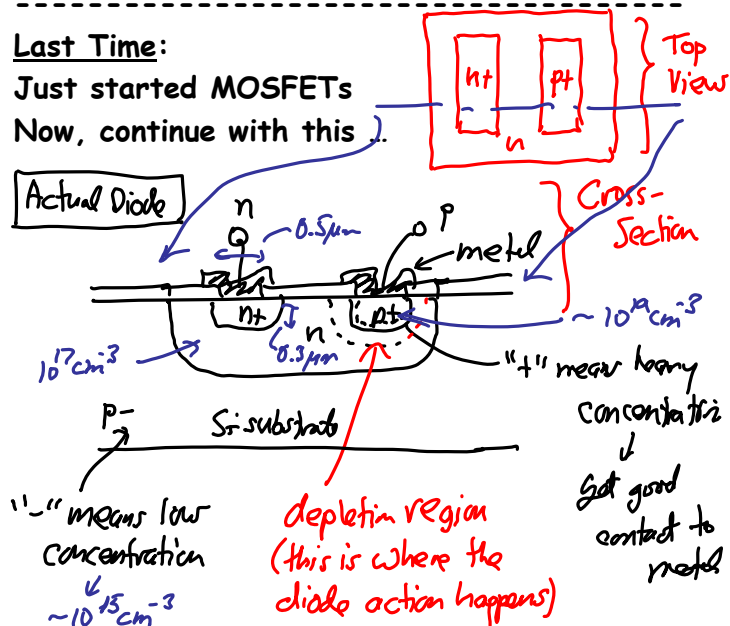 Last Time:
Just started MOSFETs
Now, continue with this …
n+
p+
n
Top
View
Actual Diode
n
0.5μm
p
metal
Cross-
Section
n+
n
p+
0.3μm
10^17 cm^-3
~ 10^19 cm^-3
p-
Si substrate
"+" means heavy
concentration
↓
get good
contact to
metal
"-" means low
concentration
↓
~10^15 cm^-3
depletion region
(this is where the
diode action happens)